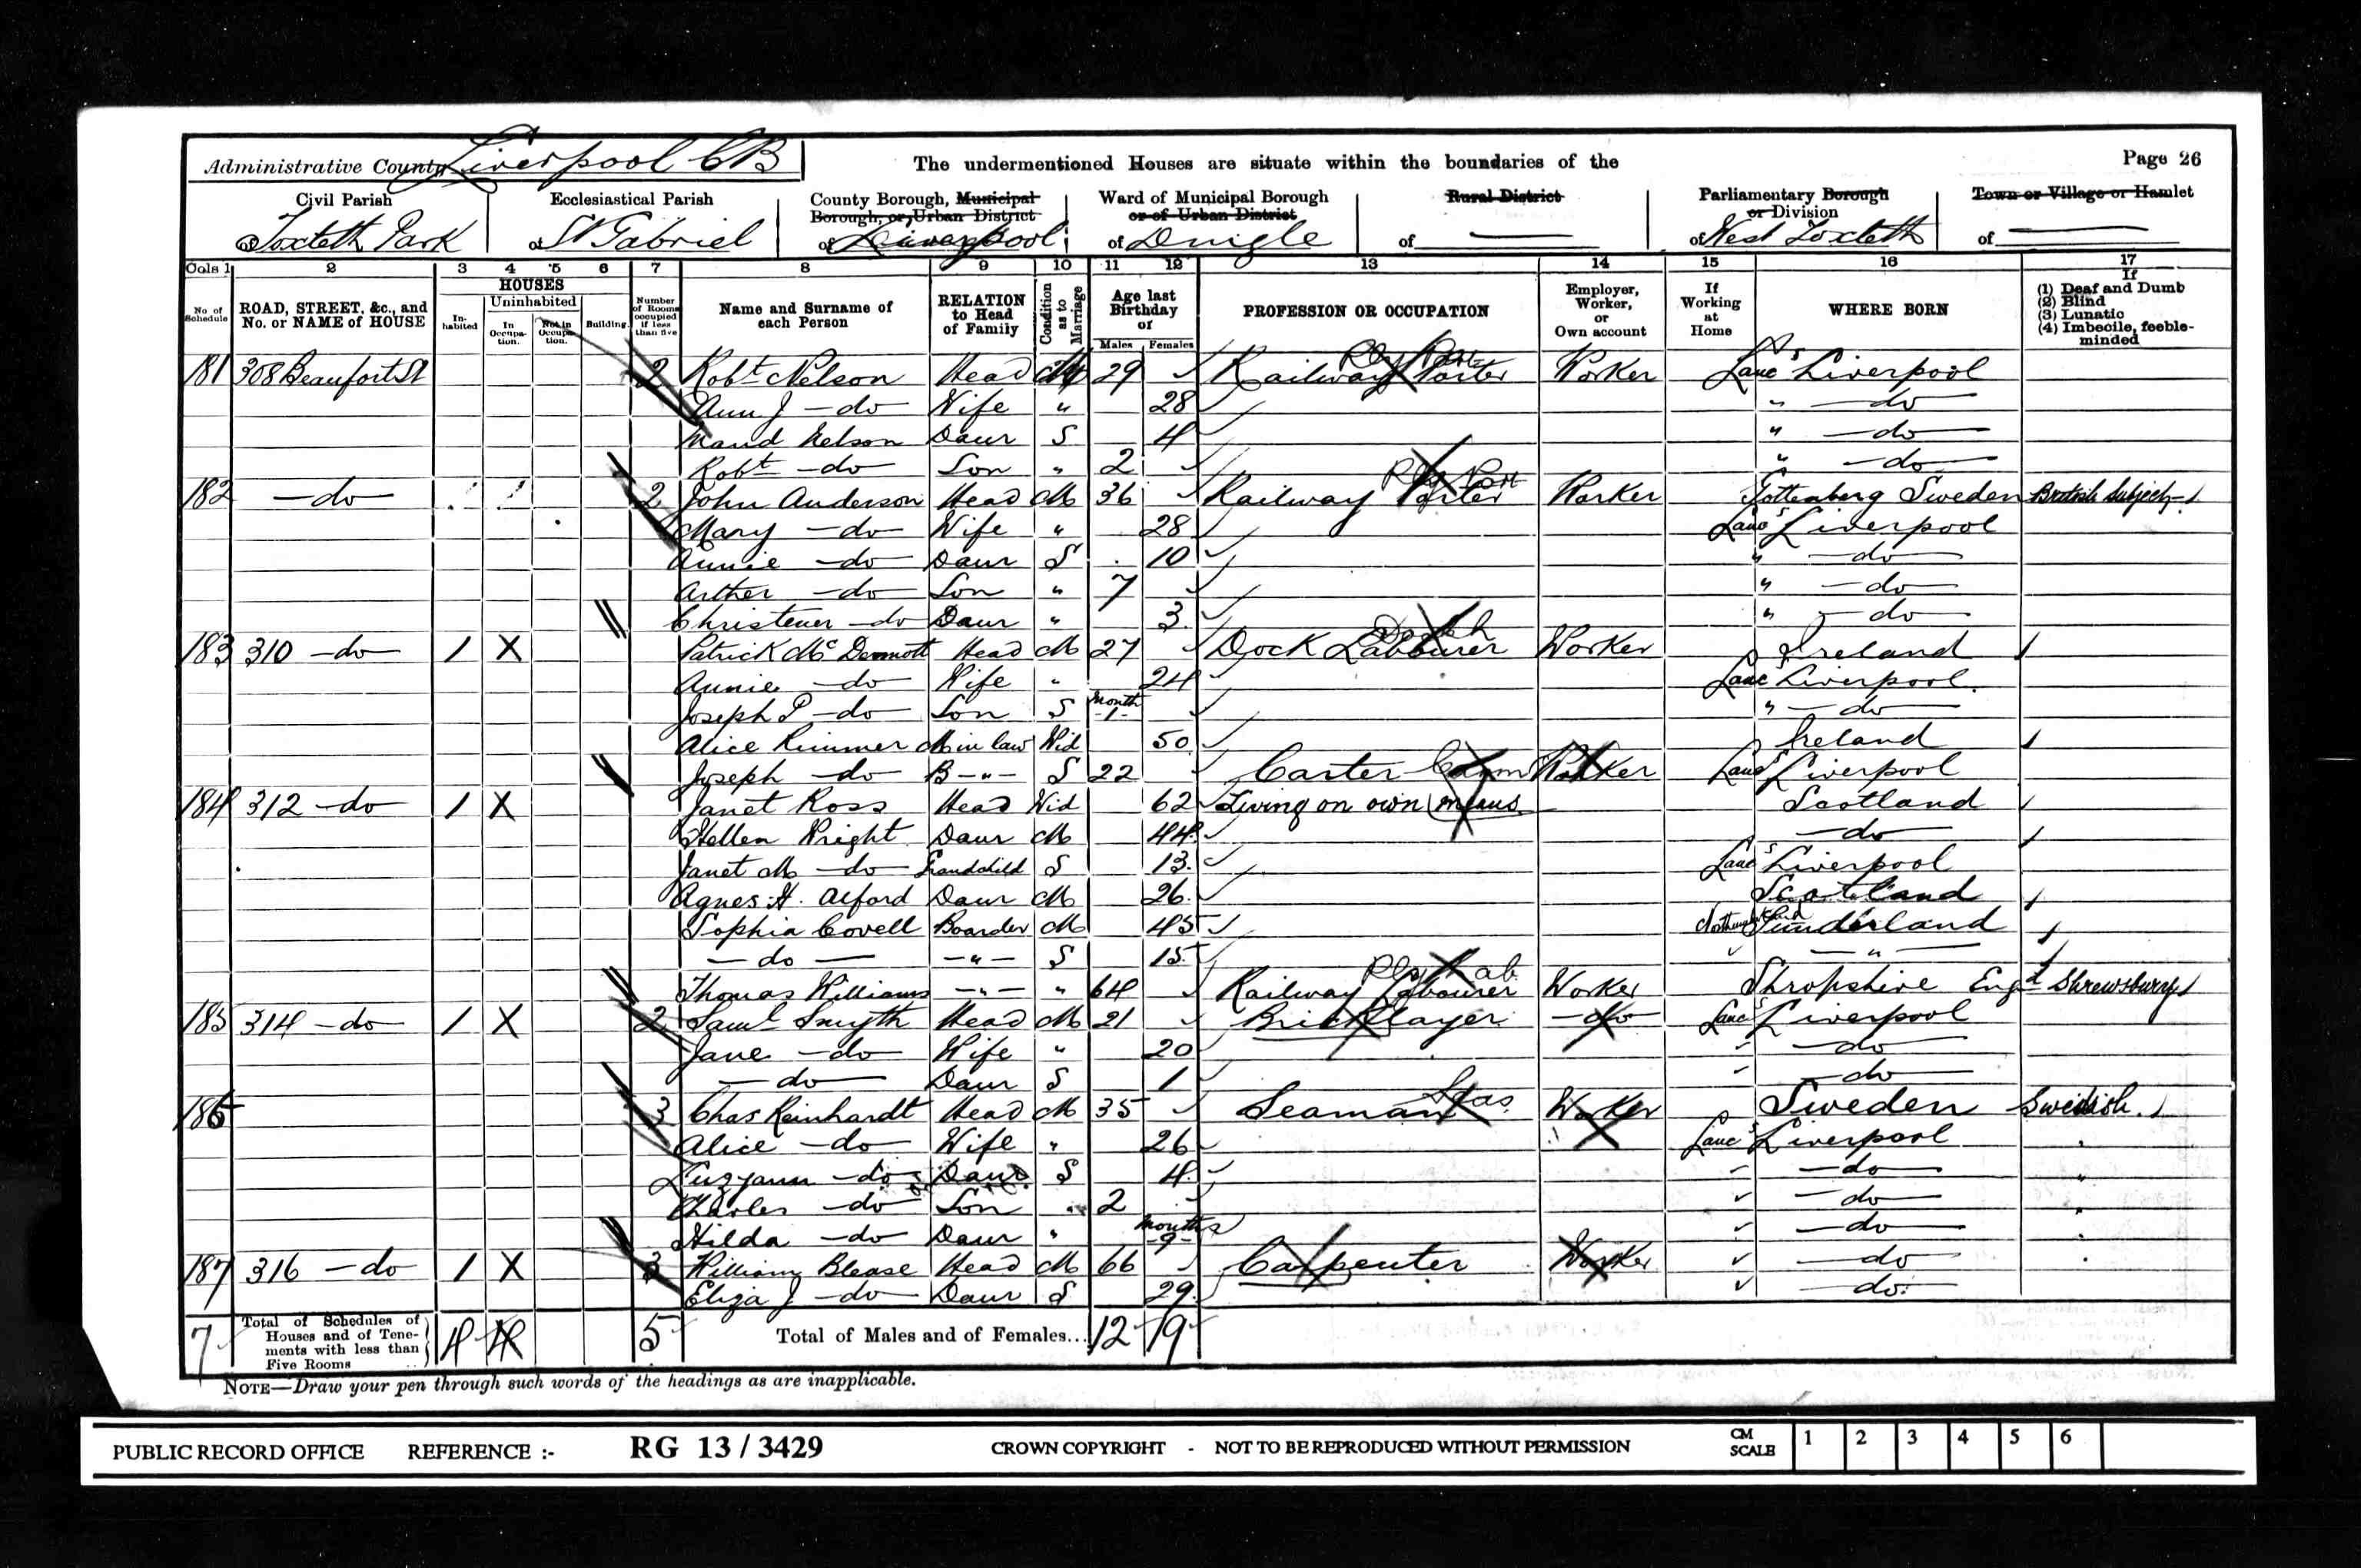 Administrative County Liverpool CB The undermentioned Houses are situate within the boundaries of the Page 26
Civil Parish Ecclesiastical Parish County Borough, Municipal Borough, or Urban District Ward of Municipal Borough or of Urban District Rural District Parliamentary Borough or Division Town or Village or Hamlet
of Toxteth Park of St Gabriel of Liverpool of Dingle of of West Toxteth of
Cols 1 2 3 4 5 6 7 8 9 10 11 12 13 14 15 16 17
No of Schedule ROAD, STREET, &c., and No. or NAME of HOUSE HOUSES Inhabited Uninhabited In Occupation. Not in Occupation. Building. Number of Rooms occupied if less than five Name and Surname of each Person RELATION to Head of Family Condition as to Marriage Age last Birthday of Males Females PROFESSION OR OCCUPATION Employer, Worker, or Own account If Working at Home WHERE BORN If (1) Deaf and Dumb (2) Blind (3) Lunatic (4) Imbecile, feeble-minded
181 308 Beaufort St 2 Robt Nelson Head M 29 Railway Porter Worker Lancs Liverpool
Ann J - do Wife " 28 " - do
Maud Nelson Daur S 4 " - do
Robt - do Son " 2 " - do
182 - do 2 John Anderson Head M 36 Railway Porter Worker Gottenberg Sweden British Subject
Mary - do Wife " 28 Lancs Liverpool
Annie - do Daur S 10 " - do
Arther - do Son " 7 " - do
Christener - do Daur " 3 " - do
183 310 - do 1 X Patrick McDermott Head M 27 Dock Labourer Worker Ireland
Annie - do Wife " 24 Lancs Liverpool
Joseph P - do Son S Month 1 " - do
Alice Rimmer M in law Wid 50 Ireland
Joseph - do B - " - S 22 Carter Worker Lancs Liverpool
184 312 - do 1 X Janet Ross Head Wid 62 Living on own means Scotland
Hellen Wright Daur M 44 - do
Janet M - do Grandchild S 13 Lancs Liverpool
Agnes H. Alford Daur M 26 Scotland
Sophia Covell Boarder M 45 Northumberland Sunderland
- do - - " - S 15 - " -
Thomas Williams - " - " 64 Railway Labourer Worker Shropshire Eng Shrewsbury
185 314 - do 1 X 2 Saml Smyth Head M 21 Bricklayer - do - Lancs Liverpool
Jane - do Wife " 20 - do
- do - Daur S 1 - do
186 3 Chas Reinhardt Head M 35 Seaman Seas Worker Sweden Swedish
Alice - do Wife " 26 Lancs Liverpool
- do Daur S 4 - do
Charles - do Son " 2 - do
Hilda - do Daur " months 9 - do
187 316 - do 1 X 3 William Blease Head M 66 Carpenter Worker - do
Eliza J - do Daur S 29 - do
7 Total of Schedules of Houses and of Tenements with less than Five Rooms 4 4 5 Total of Males and of Females... 12 19
NOTE—Draw your pen through such words of the headings as are inapplicable.
PUBLIC RECORD OFFICE REFERENCE :- RG 13 / 3429 CROWN COPYRIGHT - NOT TO BE REPRODUCED WITHOUT PERMISSION CM SCALE 1 2 3 4 5 6